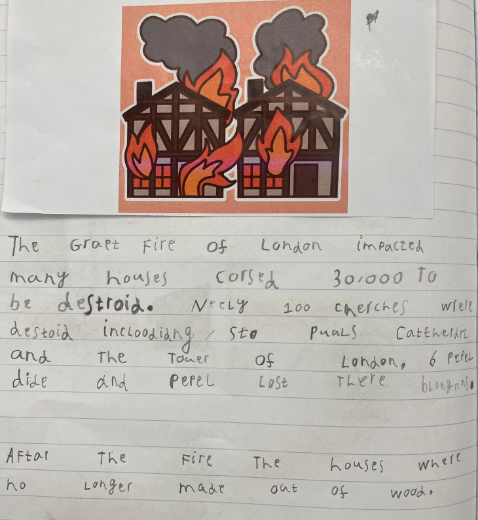 The Graet Fire of London impacted
many houses corsed 30,000 To
be destroid. Nrely 100 cherches where
destoid incloodiang, sto Puals Catthedrl
and The Tower of London, 6 PePel
dide and PePel Lost There blongings.
AFtar The Fire The houses where
no Longer made out of wood.